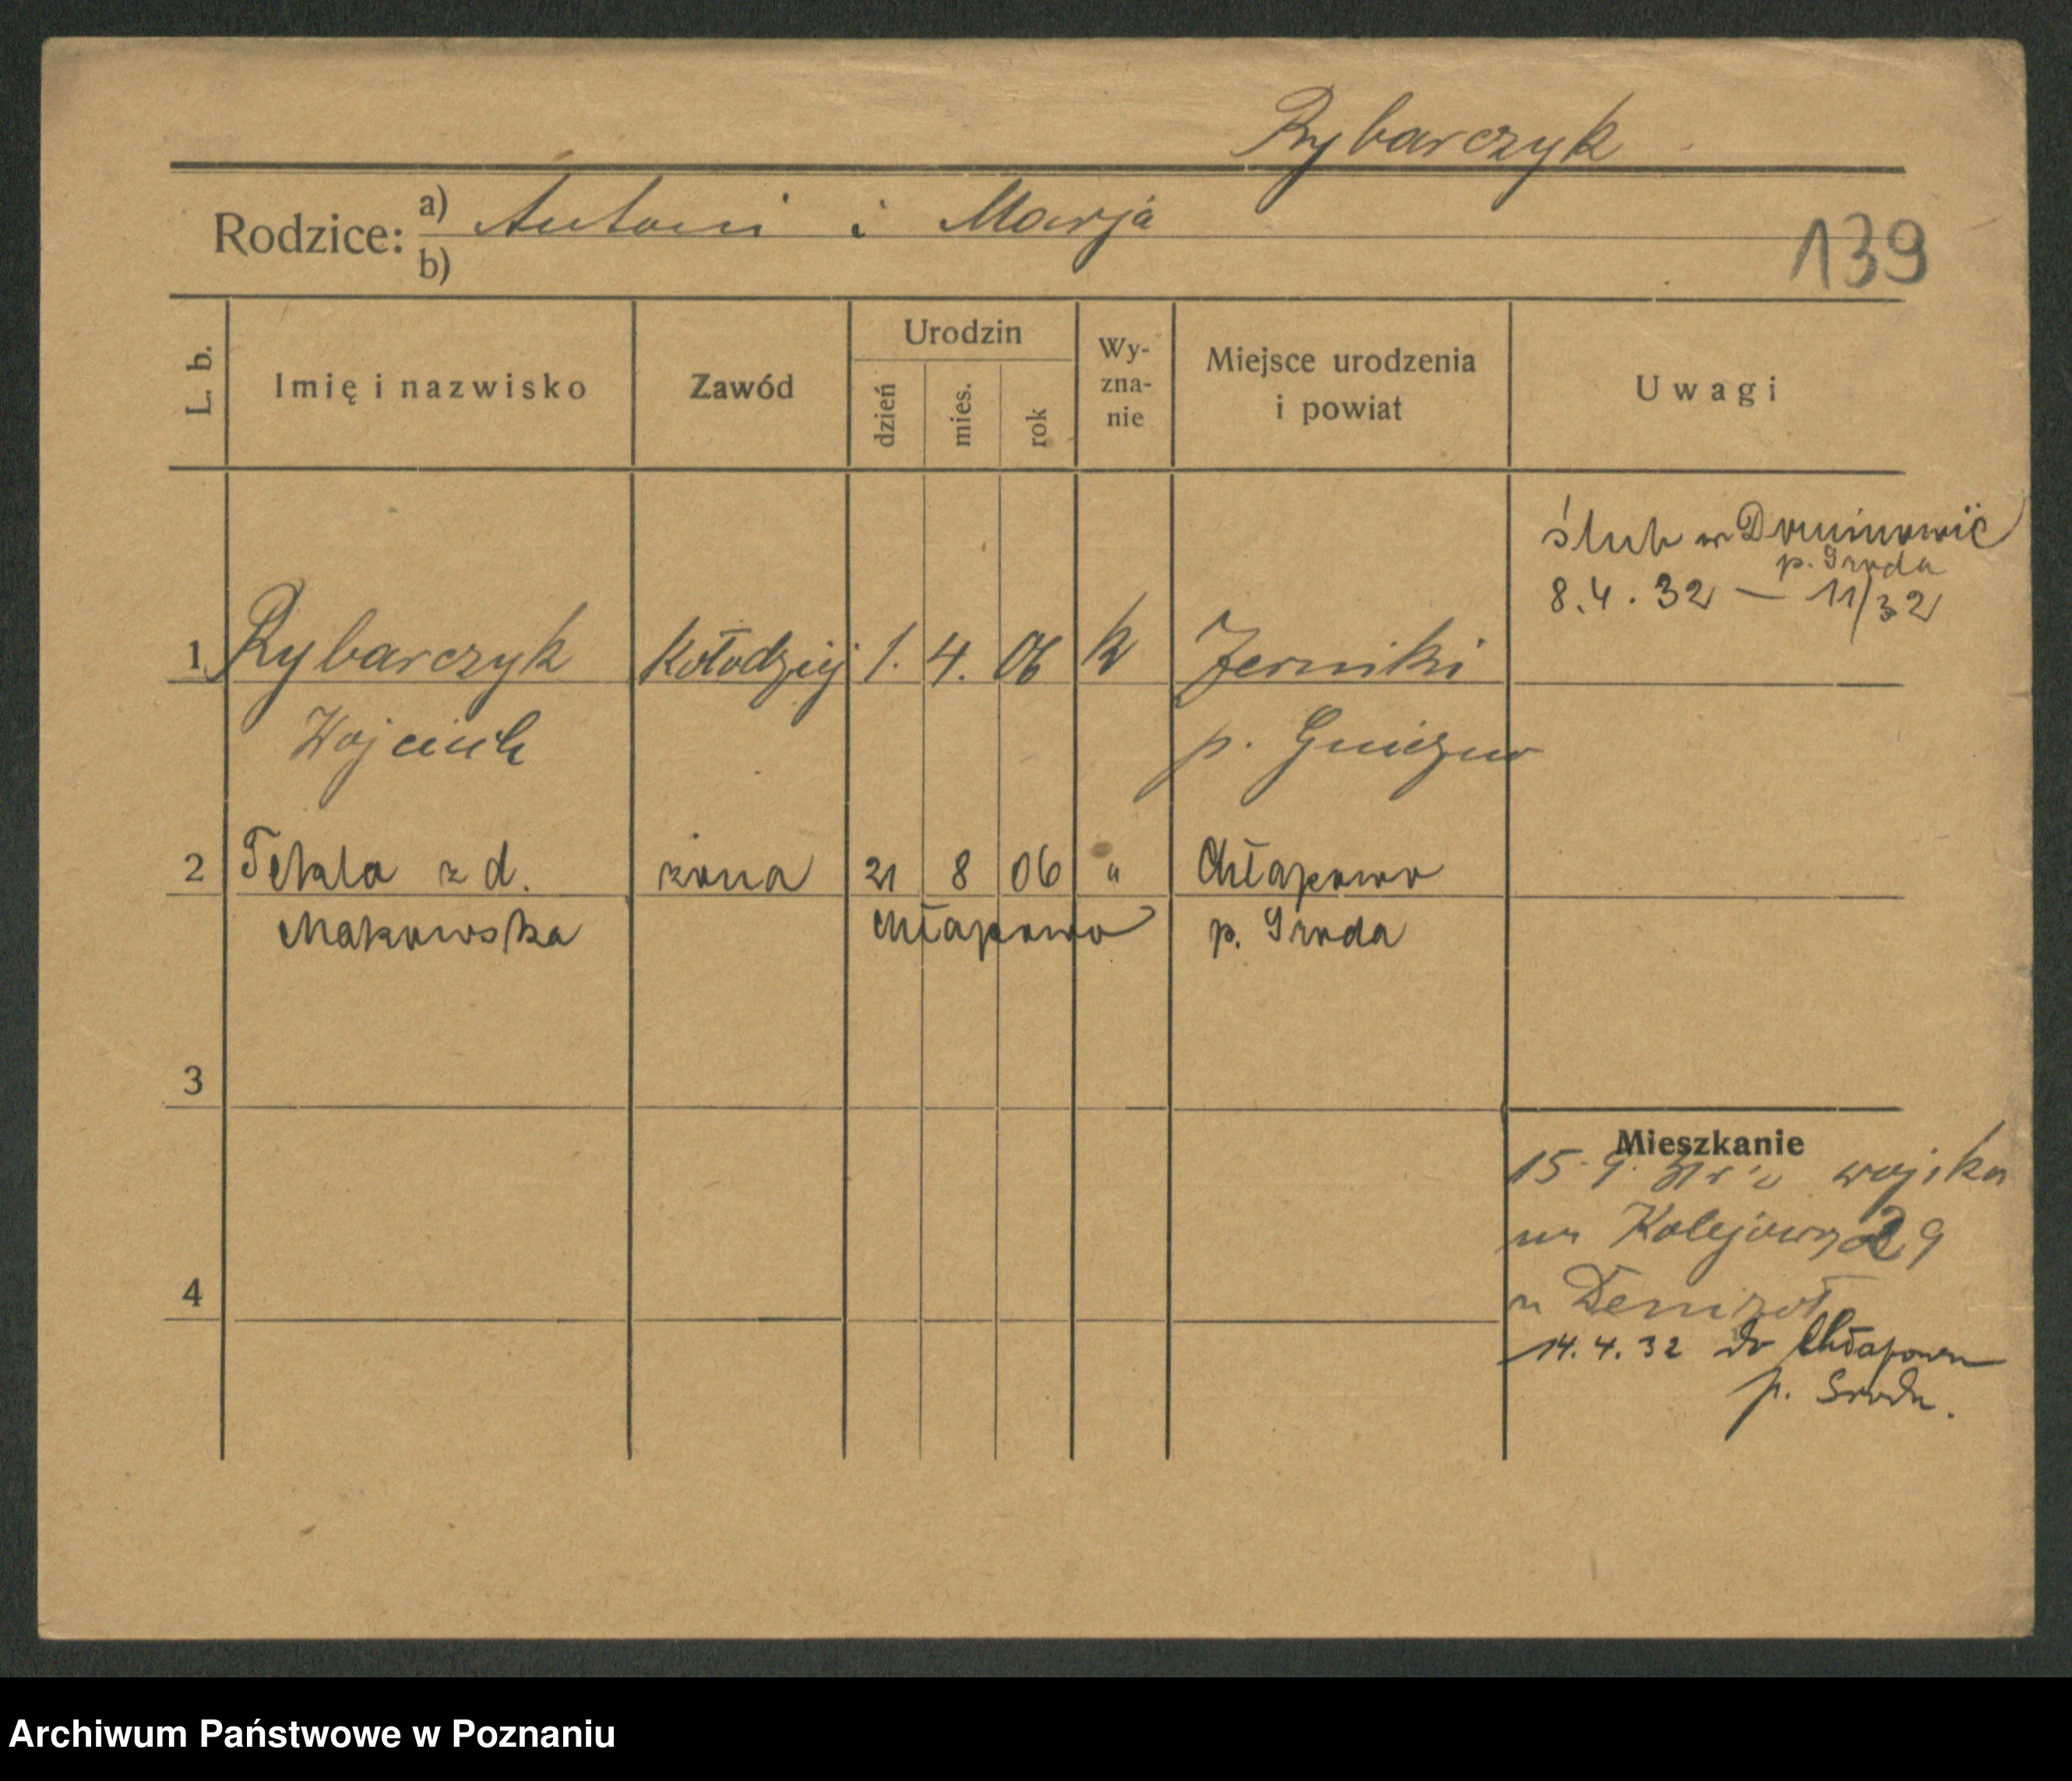 Rybarczyk
Rodzice: a) Antoni i Marja
b)
139
L. b.
Imię i nazwisko
Zawód
Urodzin
dzień
mies.
rok
Wy-
zna-
nie
Miejsce urodzenia
i powiat
Uwagi
ślub w
p. Środa
8.4.32 — 11/32
1 Rybarczyk Kołodziej 1. 4. 06 k Jerniki
Wojciech p. Gniezno
2 Tekla z d. żona 21 8 06 " Chłapowo
Makowska Chłapowo p. Środa
3
Mieszkanie
15. 9. wojska
Kolejowa 29
4
14.4.32 do Chłapowa
p. Środa.
Archiwum Państwowe w Poznaniu